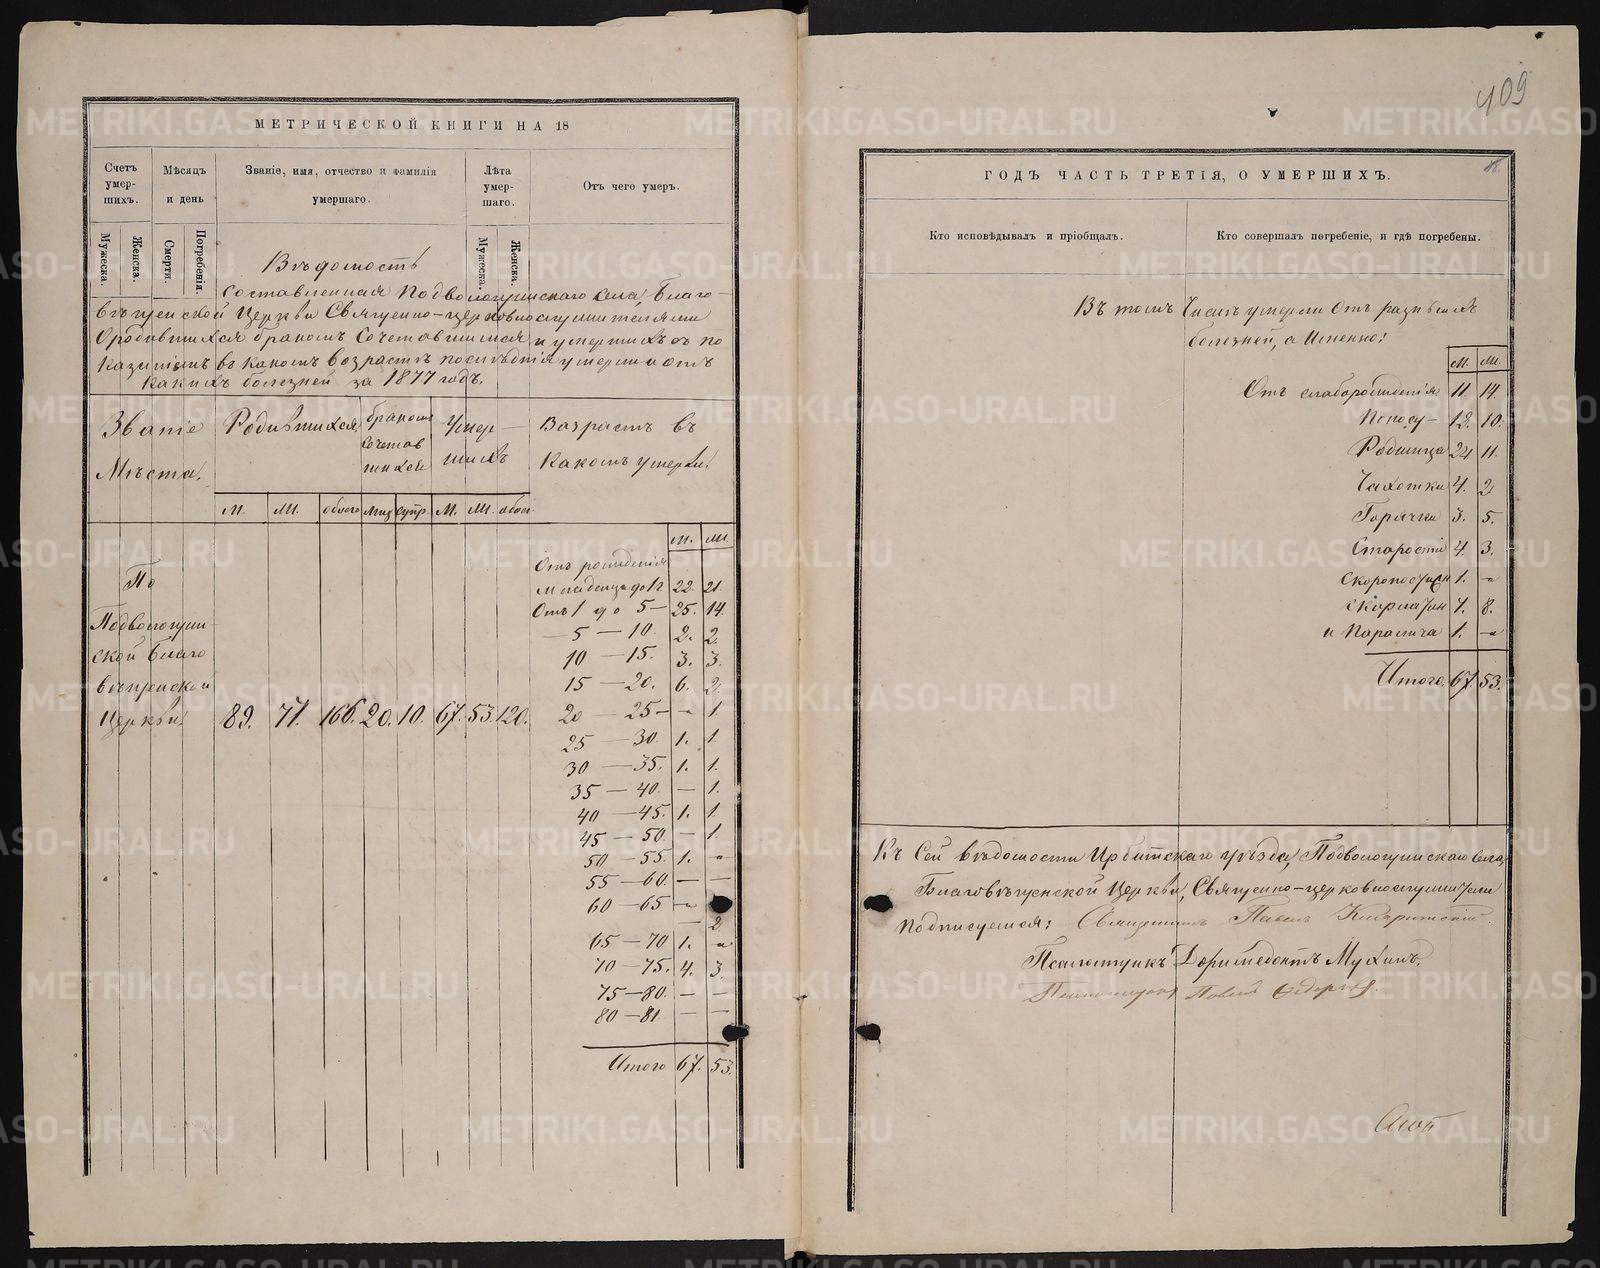 МЕТРИЧЕСКОЙ КНИГИ НА 18
Счетъ умер-шихъ.
Мѣсяцъ и день
Званіе, имя, отчество и фамилія умершаго.
Лѣта умер-шаго.
Отъ чего умеръ.
Мужеска.
Женска.
Смерти.
Погребенія.
Мужеска.
Женска.
Вѣдомость
составленная Подволошинскаго села, Благо-
вѣщенской Церкви Священно-церковнослужителями
О родившихся бракомъ Сочетавшихся и умершихъ съ по
казаніемъ въ какомъ возрастѣ послѣднія умерли и отъ
какихъ болезней за 1877 годъ.
Званіе Мѣста.
Родившихся
бракомъ сочетав шихся
Умер-шихъ
Возрастъ въ
Какомъ умерли.
М. Ж. обоего М. Ж. обоег.
М. Ж.
Отъ рожденія
младенцъ до 1г 22. 21.
Отъ 1 до 5 — 25. 14.
— 5 — 10. 2. 2.
10 — 15. 3. 3.
15 — 20. 6. 2.
По
ской Благо
вѣщенской
Церкви 89. 77. 166. 20. 10. 67. 53. 120.
20 — 25 — „ 1.
25 — 30. 1. 1.
30 — 35. 1. 1.
35 — 40. — 1.
40 — 45. 1. 1.
45 — 50 — 1.
50 — 55. 1. „
55 — 60. — —
60 — 65 — „
— 2.
65 — 70 1. „
70 — 75. 4. 3.
75 — 80. — —
80 — 81. — —
Итого 67. 53.
409
ГОДЪ ЧАСТЬ ТРЕТІЯ, О УМЕРШИХЪ.
Кто исповѣдывалъ и пріобщалъ.
Кто совершалъ погребеніе, и гдѣ погребены.
Въ томъ Числѣ умерли Отъ разныхъ
болезней, а Именно:
М. Ж.
Отъ слаборожденія 11. 14.
Поносу — 12. 10.
Родимца 24 11.
Чахотки 4. 2
Горячки 3. 5.
Старости 4. 3.
1. „
7. 8.
и Паралича 1. „
Итого. 67. 53.
Къ Сей вѣдомости Ирбитскаго уѣзда, Подволошинскаго Села,
Благовѣщенской Церкви, Священно-церковнослужители
подписуемся: Священникъ Павелъ
Псаломщикъ Доримедонтъ Мухинъ.
Псаломщикъ Павелъ
METRIKI.GASO-URAL.RU